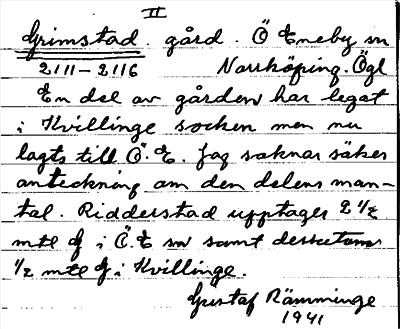 II
Grimstad. gård. Ö Eneby sn
2111-2116 Norrköping. Ögl
En del av gården har legat
i Kvillinge socken men nu
lagts till Ö. E. Jag saknar säker
anteckning om den delens man-
tal. Ridderstad upptager 2 1/2
mtl fr i Ö. E sn samt dessutom
1/2 mtl fr i Kvillinge.
Gustaf Rämminge
1941